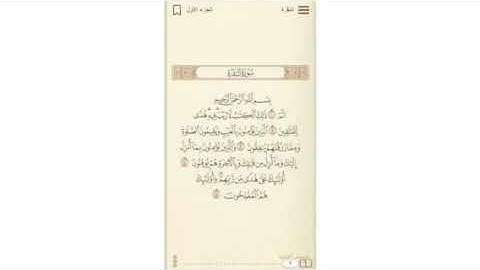 البقرة
الجزء الأول
سورة البقرة
بسم الله الرحمن الرحيم
الم ۝ ذلك الكتب لا ريب فيه هدى
للمتقين ۝ الذين يؤمنون بالغيب ويقيمون الصلوة
ومما رزقنهم ينفقون ۝ والذين يؤمنون بما أنزل
إليك وما أنزل من قبلك وبالآخرة هم يوقنون ۝
أولئك على هدى من ربهم وأولئك
هم المفلحون ۝